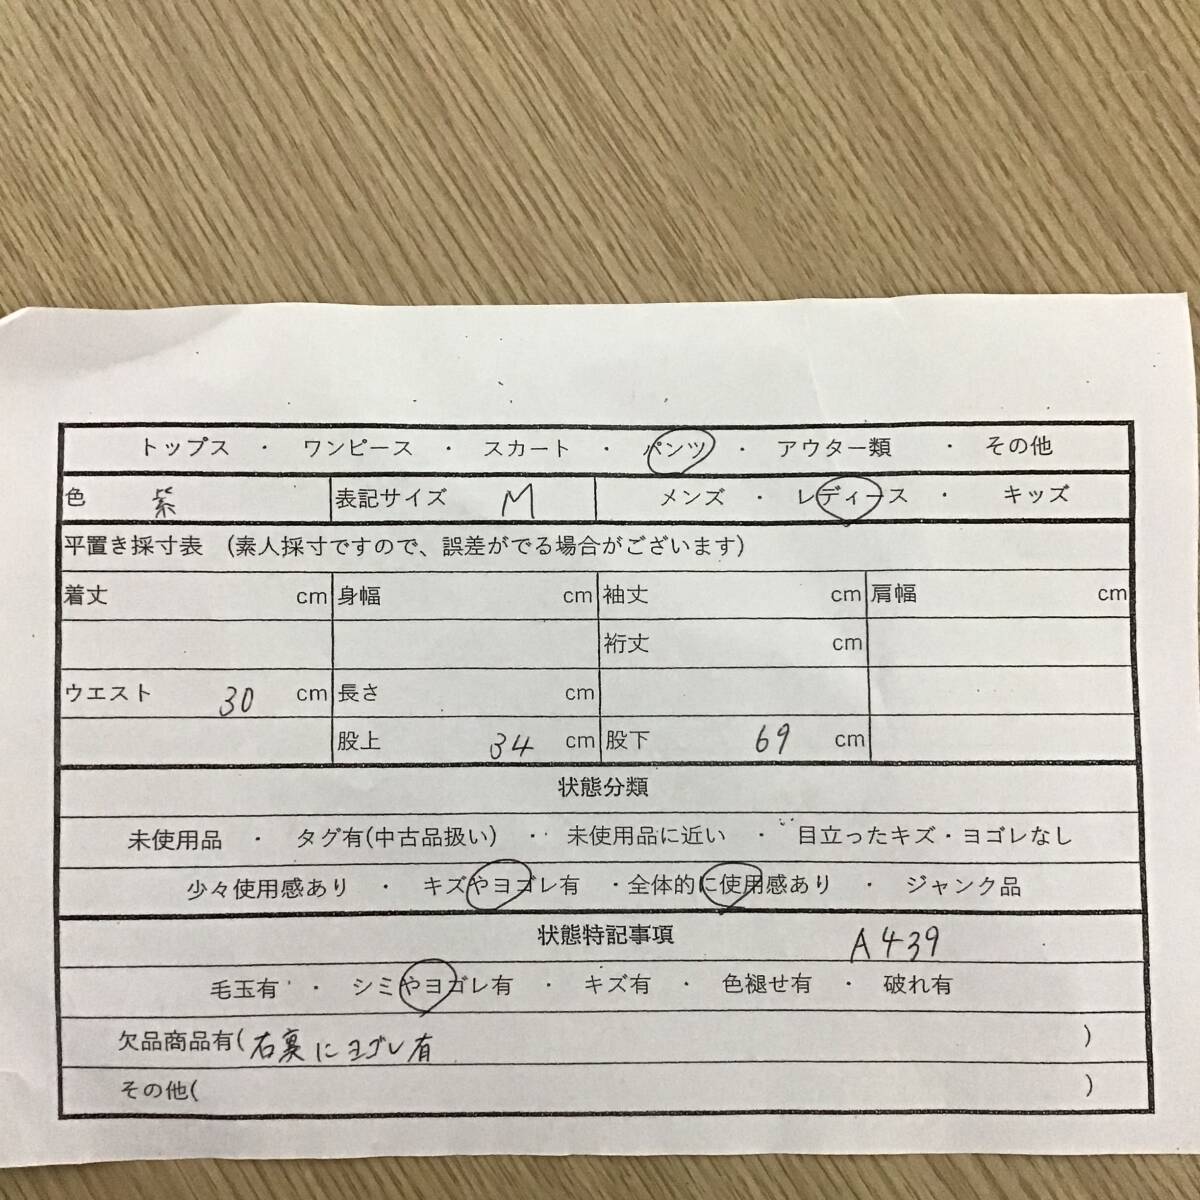 トップス ・ ワンピース ・ スカート ・ パンツ ・ アウター類 ・ その他
色 紫 表記サイズ M メンズ ・ レディース ・ キッズ
平置き採寸表 (素人採寸ですので、誤差がでる場合がございます)
着丈 cm 身幅 cm 袖丈 cm 肩幅 cm
裄丈 cm
ウエスト 30 cm 長さ cm
股上 34 cm 股下 69 cm
状態分類
未使用品 ・ タグ有(中古品扱い) ・ 未使用品に近い ・ 目立ったキズ・ヨゴレなし
少々使用感あり ・ キズやヨゴレ有 ・全体的に使用感あり ・ ジャンク品
状態特記事項 A439
毛玉有 ・ シミやヨゴレ有 ・ キズ有 ・ 色褪せ有 ・ 破れ有
欠品商品有( 右裏にヨゴレ有 )
その他( )